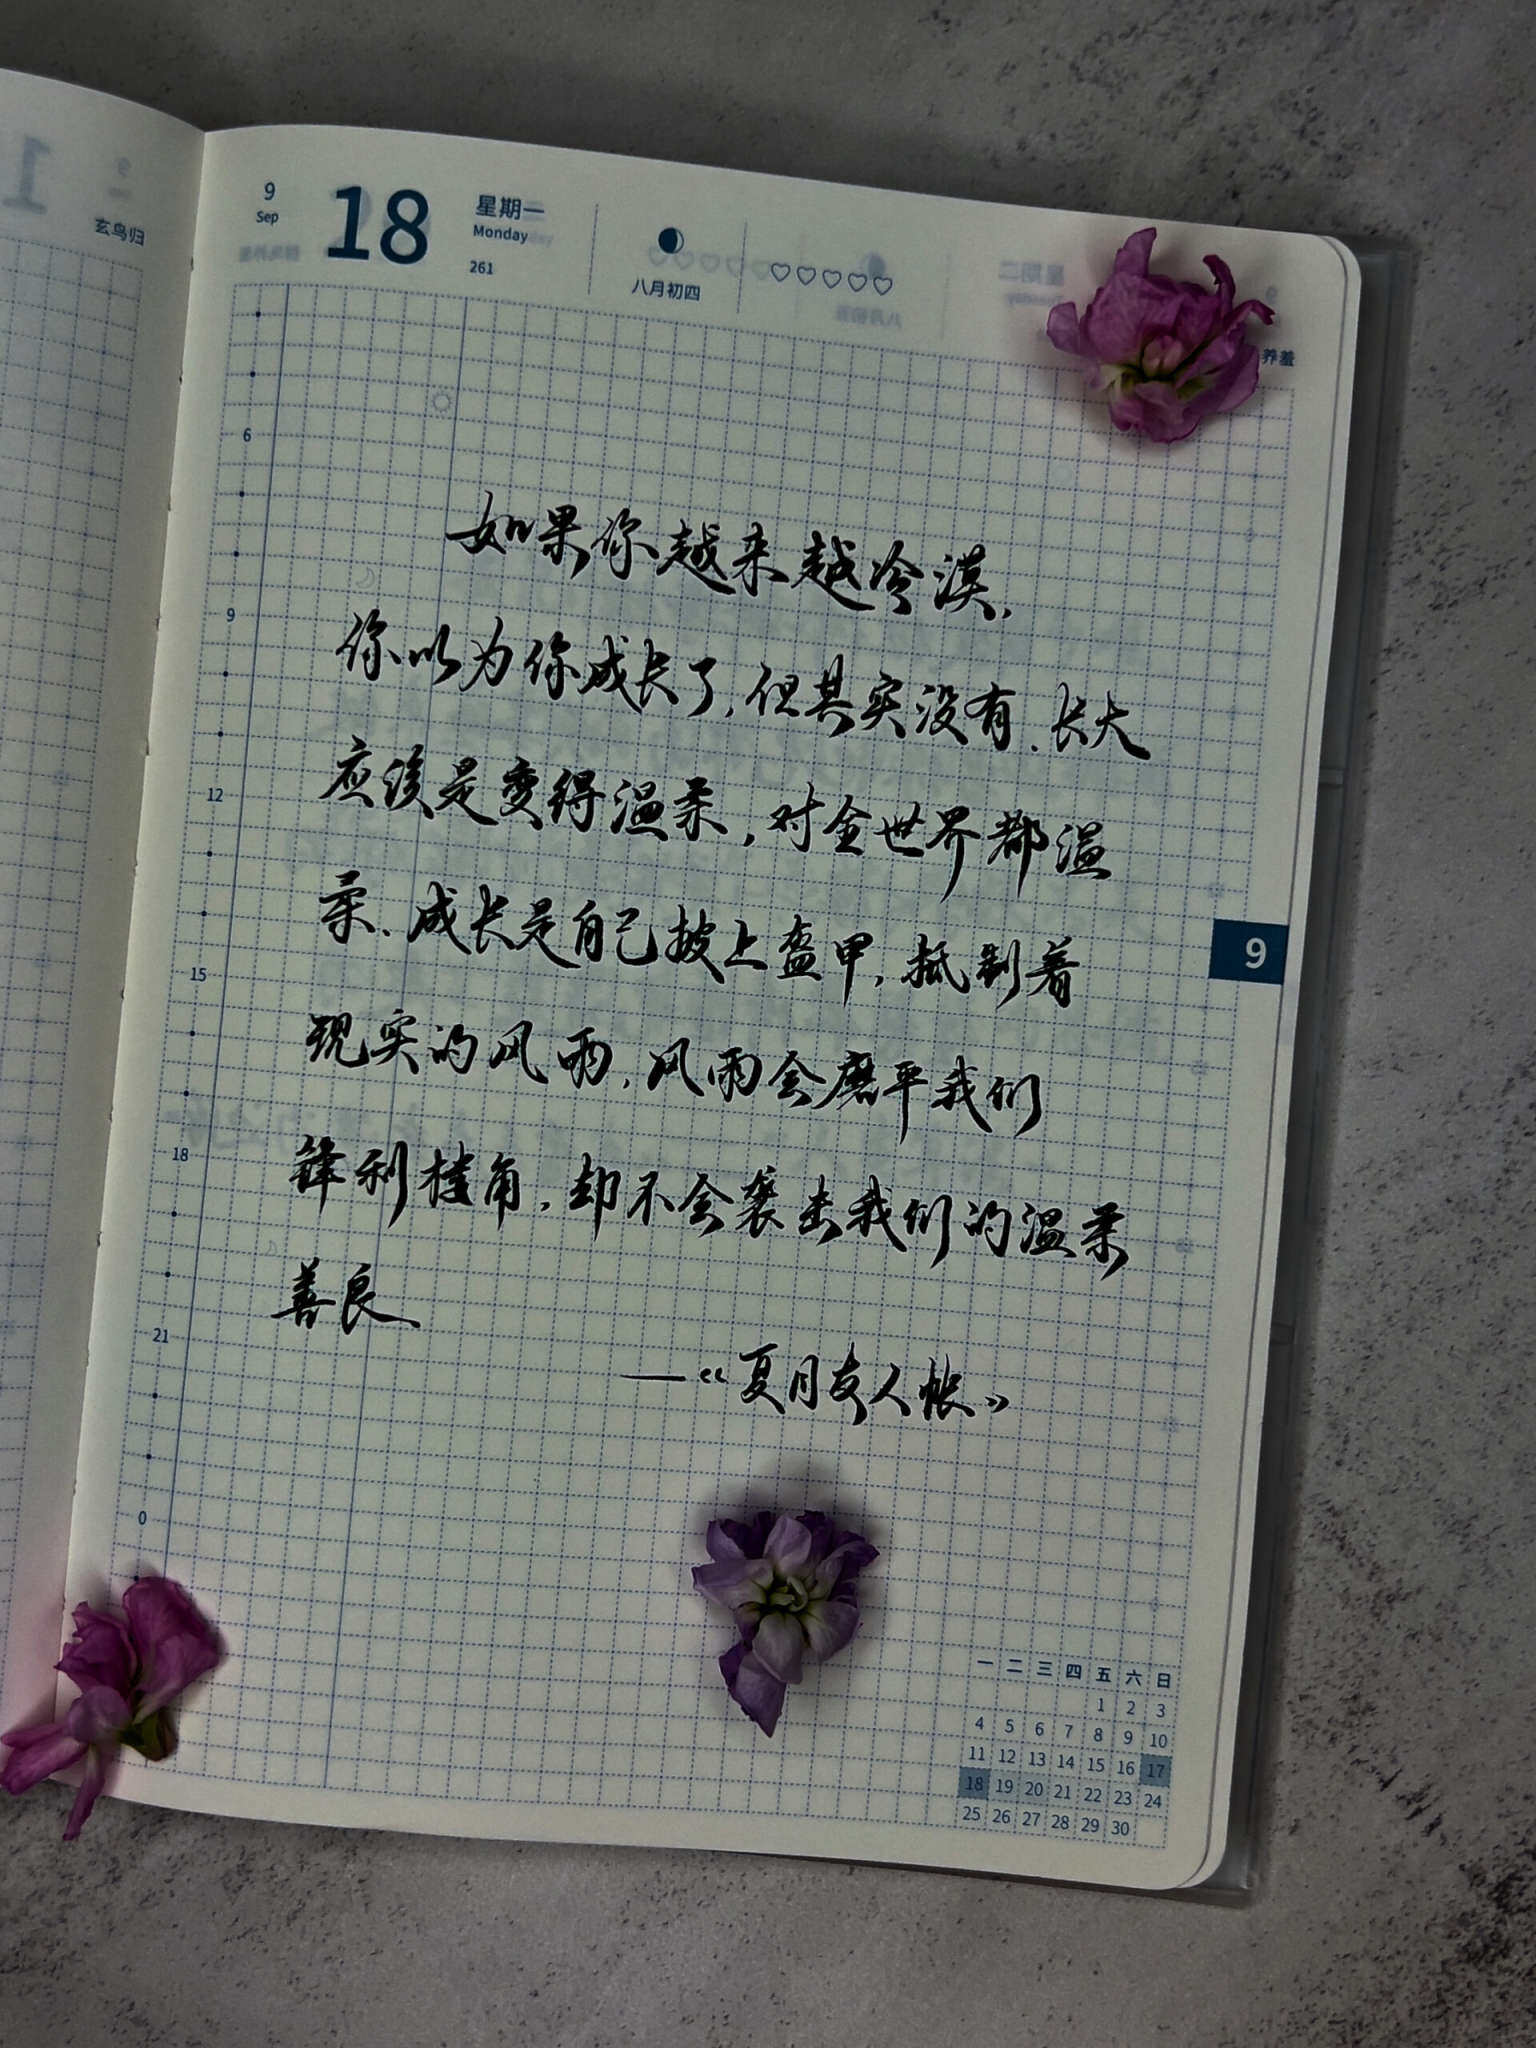 玄鸟归
9
Sep
18
星期一
Monday
261
八月初四
养羞
6
9
12
15
18
21
0
如果你越来越冷漠,
你以为你成长了,但其实没有.长大
应该是变得温柔,对全世界都温
柔.成长是自己披上盔甲,抵制着
现实的风雨,风雨会磨平我们
锋利棱角,却不会袭击我们的温柔
善良
—《夏目友人帐》
9
一 二 三 四 五 六 日
1 2 3
4 5 6 7 8 9 10
11 12 13 14 15 16 17
18 19 20 21 22 23 24
25 26 27 28 29 30